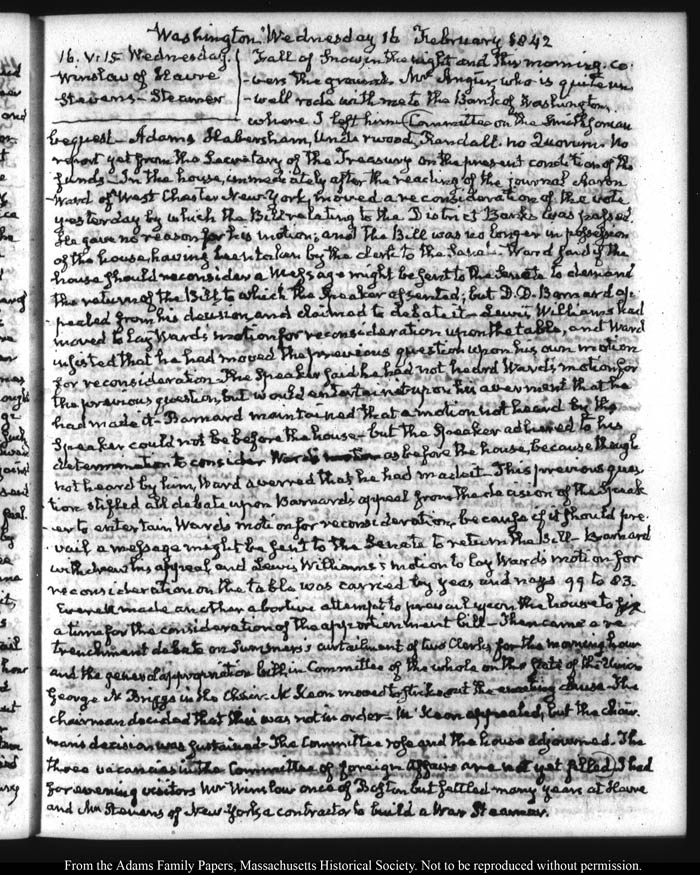 Washington Wednesday 16 February 1842
16. V:15 Wednesday. Fall of Snow in the night and this morning. co-
Winslow of Havre -vers the ground. Mr Angier, who is quite un
Stevens - Steamer -well rode with me to the Bank of Washington,
where I left him Committee on the Smithsonian
bequest - Adams, Habersham, Underwood, Randall. no Quorum. No
report yet from the Secretary of the Treasury on the present condition of the
funds - In the house, immediately after the reading of the journal Aaron
Ward of West Chester New-York, moved a reconsideration of the vote
yesterday by which the Bill relating to the District Banks was passed.
He gave no reason for his motion; and the Bill was no longer in possession
of the house, having been taken by the clerk to the Senate. Ward said if the
house should reconsider a Message might be sent to the Senate to demand
the return of the Bill to which the Speaker assented; but D. D. Barnard ap-
-pealed from his decision, and claimed to debate it - Lewis Williams had
moved to lay Ward's motion for reconsideration upon the table, and Ward
insisted that he had moved the previous question upon his own motion
for reconsideration - The Speaker said he had not heard Ward's motion for
the previous question, but would entertain it upon his averment that he
had made it - Barnard maintained that a motion not heard by the
Speaker could not be before the house - but the Speaker adhered to his
determination to consider Ward's motion as before the house, because though
not heard by him, Ward averred that he had made it. This previous ques-
tion stifled all debate upon Barnard's appeal from the decision of the Speak
-er to entertain Ward's motion for reconsideration, because if it should pre-
-vail a message might be sent to the Senate to return the Bill - Barnard
withdrew his appeal and Lewis Williams's motion to lay Ward's motion for
reconsideration on the table was carried by yeas and nays 99 to 83.
Everett made another abortive attempt to prevail upon the house to fix
a time for the consideration of the apportionment bill - Then came a re
trenchment debate on Summers's curtailment of two Clerks for the morning hour
and the general appropriation bill in Committee of the whole on the State of the Union
George N. Briggs in the Chair. McKeon moved to strike out the enacting clause - The
chairman decided that this was not in order - McKeon appealed, but the chair-
man's decision was sustained - The Committee rose and the house adjourned. The
three vacancies in the Committee of foreign Affairs are not yet filled) I had
for evening visitors Mr Winslow once of Boston but settled many years at Havre
and Mr Stevens of New York, a contractor to build a War Steamer.
From the Adams Family Papers, Massachusetts Historical Society. Not to be reproduced without permission.